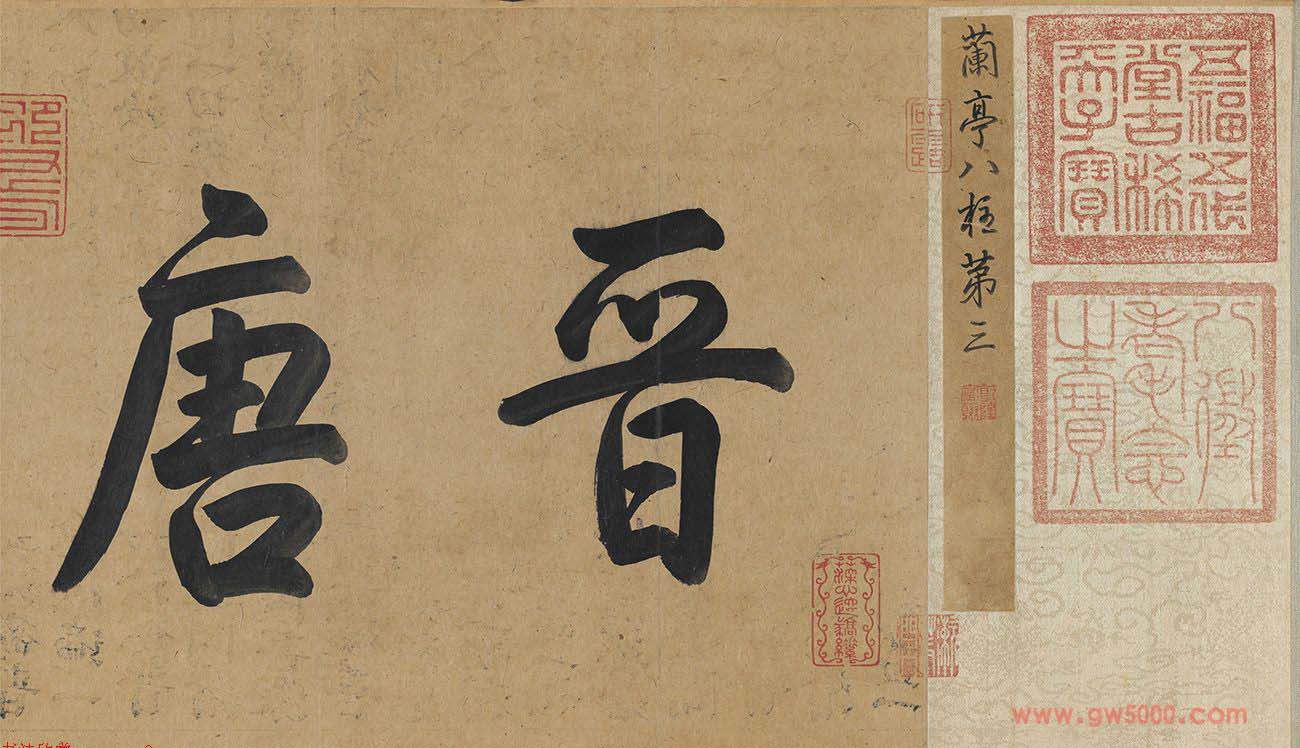 五福五代
堂古稀
天子寶
八徵
耄念
之寶
蘭亭八柱第三
晋唐
www.gw5000.com